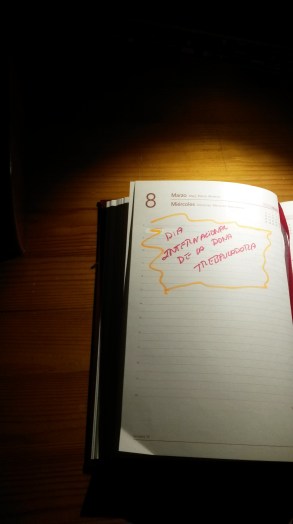 8
Marzo
Miércoles
DIA
INTERNACIONAL
DE LA DONA
TREBALLADORA